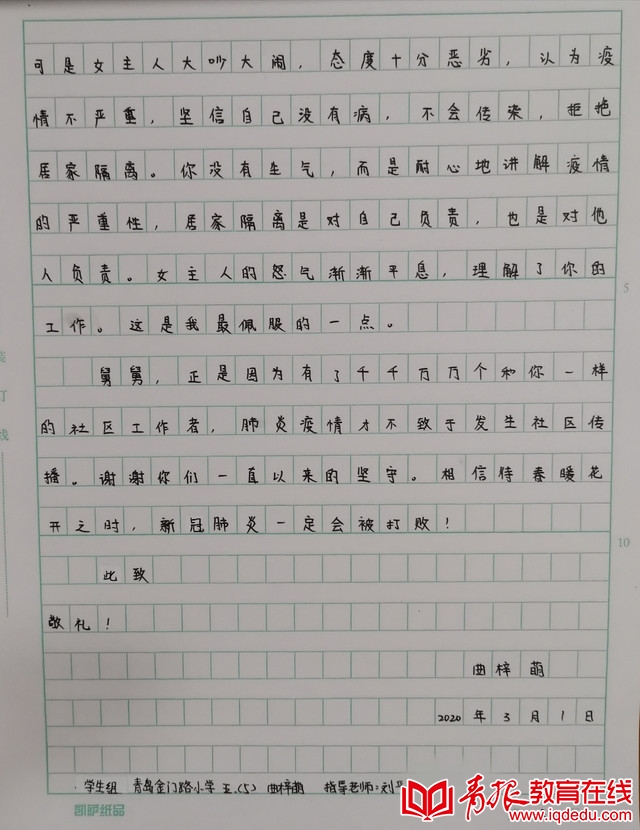 可是女主人大吵大闹，态度十分恶劣，认为疫
情不严重，坚信自己没有病，不会传染，拒绝
居家隔离。你没有生气，而是耐心地讲解疫情
的严重性，居家隔离是对自己负责，也是对他
人负责。女主人的怒气渐渐平息，理解了你的
工作。这是我最佩服的一点。
舅舅，正是因为有了千千万万个和你一样
的社区工作者，肺炎疫情才不致于发生社区传
播。谢谢你们一直以来的坚守。相信待春暖花
开之时，新冠肺炎一定会被打败！
此致
敬礼！
曲梓萌
2020年3月1日
学生组 青岛金门路小学 五.(5) 曲梓萌 指导老师：刘
凯萨纸品
5
10
订
线
青报教育在线
www.iqdedu.com